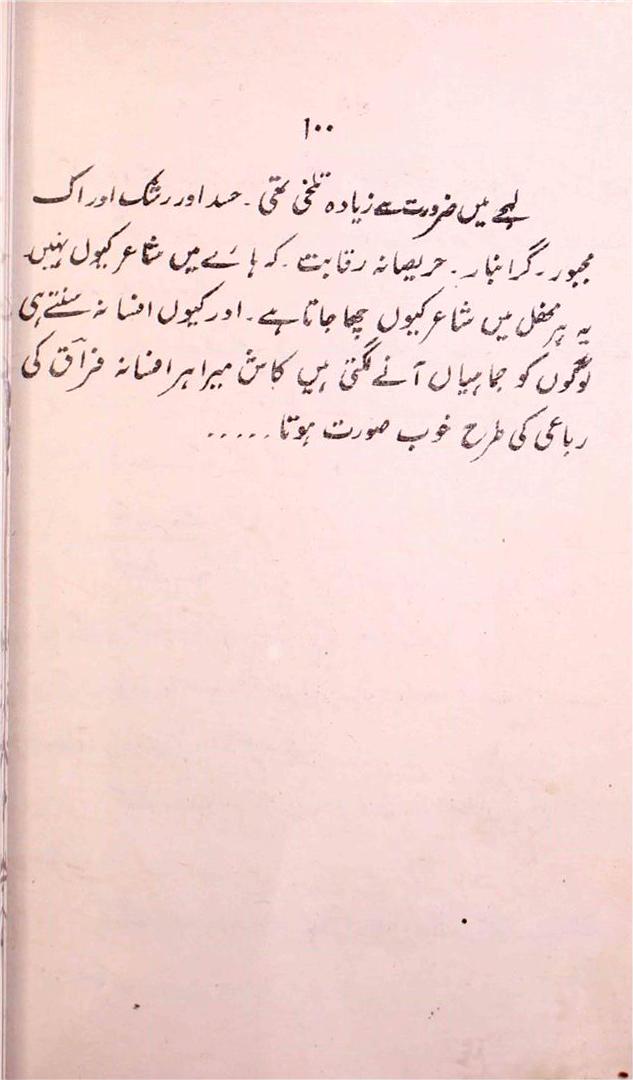 ۱۰۰
لہجے میں ضرورت سے زیادہ تلخی تھی۔ حسد اور رشک اور اک
مجبور۔ گرانبار۔ حریصانہ رقابت۔ کہ ہائے میں شاعر کیوں نہیں۔
یہ ہر محفل میں شاعر کیوں چھا جاتا ہے۔ اور کیوں افسانہ سنتے ہی
لوگوں کو جماہیاں آنے لگتی ہیں کاش میرا ہر افسانہ فراق کی
رباعی کی طرح خوب صورت ہوتا.....